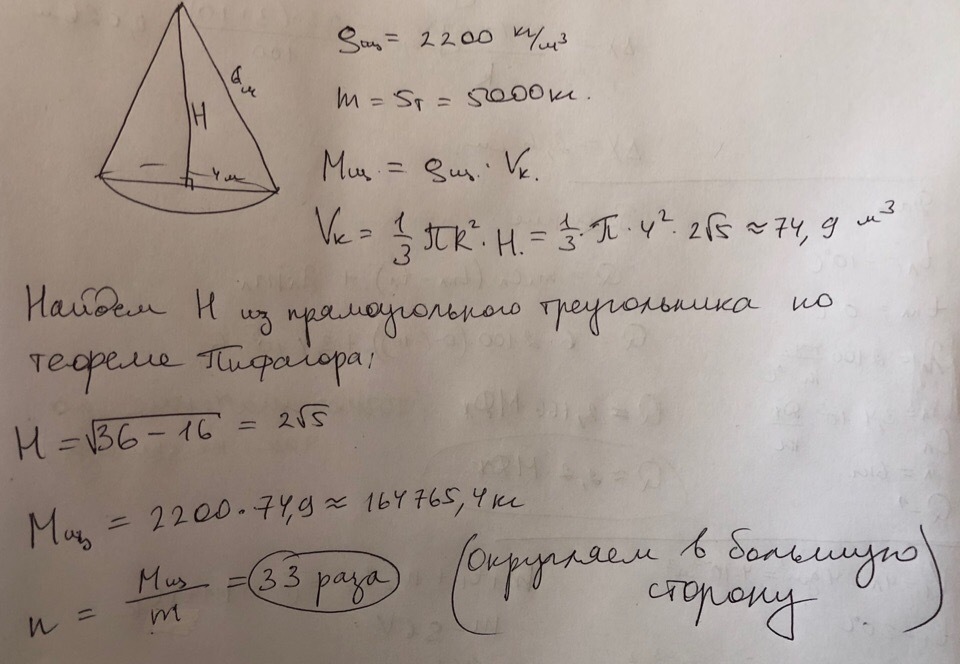 6м
H
4м
ρщ = 2200 кг/м³
m = 5т = 5000кг.
Mщ. = ρщ. · Vк.
Vк = 1/3 πR² · H. = 1/3 · π · 4² · 2√5 ≈ 74,9 м³
Найдем H из прямоугольного треугольника по
теореме Пифагора:
H = √36 – 16 = 2√5
Mщ = 2200 · 74,9 ≈ 164765,4кг
n = Mщ/m = 33 раза
(округляем в большую
сторону)